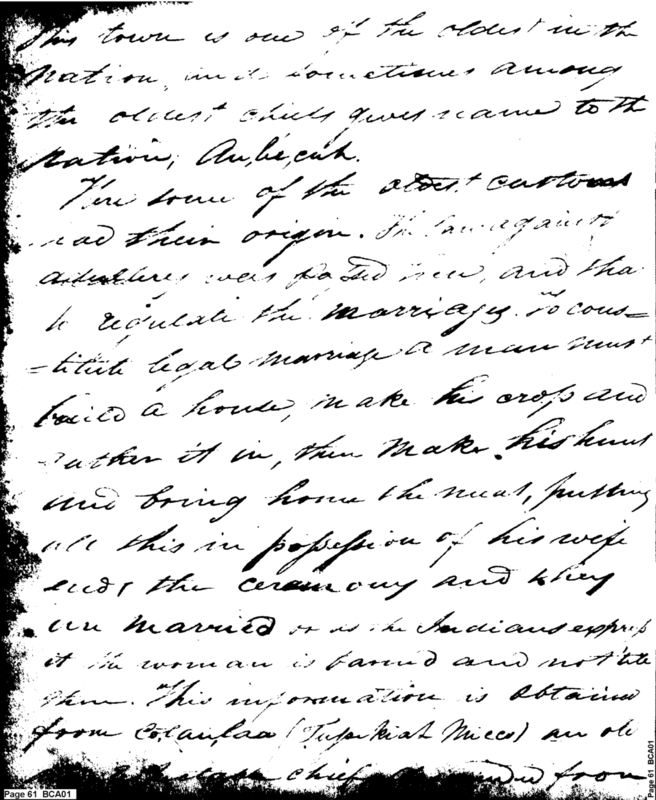 This town is one of the oldest in the
Nation, and sometimes among
the oldest chiefs gives name to the
Nation, Au,be,cuh.
Here some of the oldest customs
had their origin. The law against
adultery was passed here, and that
to regulate the marriages. To cons=
=titute legal marriage a man must
build a house, make his crop and
gather it in, then make his hunt
and bring home the meat, putting
all this in possession of his wife
ends the ceremony and they
are married or as the Indians express
it the woman is bound and not till
then. This information is obtained
from Co,tau,lau (Tus,se,kiah Micco) an old
chief from
Page 61 BCA01
Page 61 BCA01